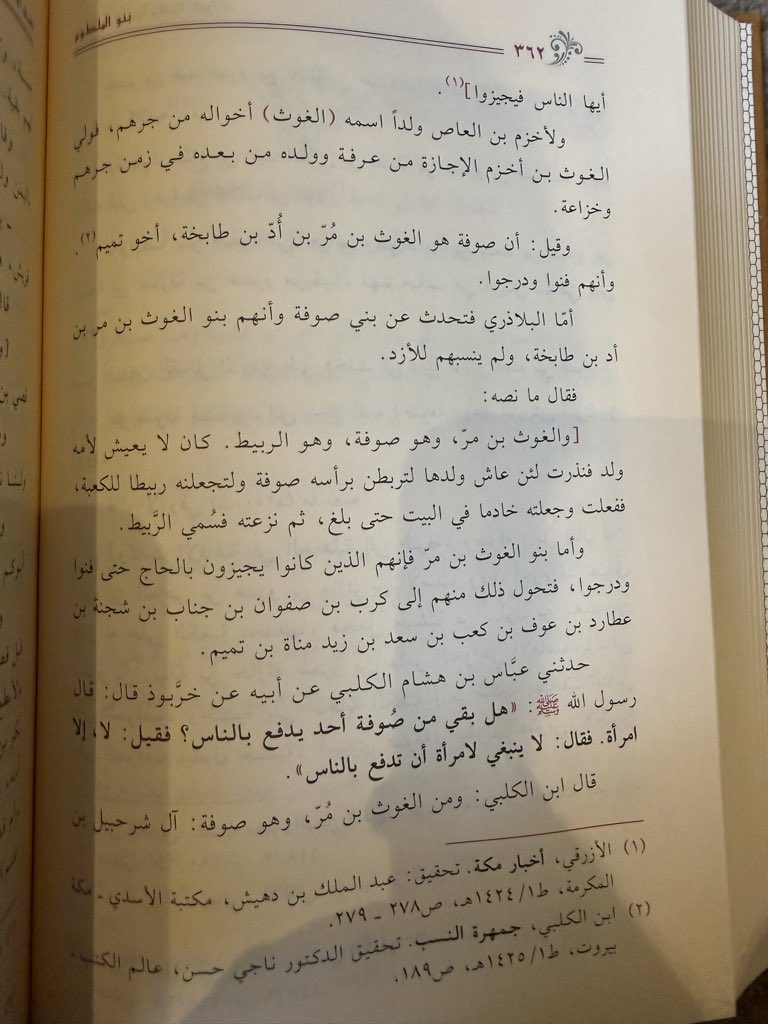 بنو الملطوم
٣٦٢
أيها الناس فيجيزوا](١).
ولأخزم بن العاص ولداً اسمه (الغوث) أخواله من جرهم، فولي
الغوث بن أخزم الإجازة من عرفة وولده من بعده في زمن جرهم
وخزاعة.
وقيل: أن صوفة هو الغوث بن مُرّ بن أُدّ بن طابخة، أخو تميم(٢).
وأنهم فنوا ودرجوا.
أمّا البلاذري فتحدث عن بني صوفة وأنهم بنو الغوث بن مر بن
أد بن طابخة، ولم ينسبهم للأزد.
فقال ما نصه:
[والغوث بن مرّ، وهو صوفة، وهو الربيط. كان لا يعيش لأمه
ولد فنذرت لئن عاش ولدها لتربطن برأسه صوفة ولتجعلنه ربيطا للكعبة،
ففعلت وجعلته خادما في البيت حتى بلغ، ثم نزعته فسُمي الرَّبيط.
وأما بنو الغوث بن مرّ فإنهم الذين كانوا يجيزون بالحاج حتى فنوا
ودرجوا، فتحول ذلك منهم إلى كرب بن صفوان بن جناب بن شجنة بن
عطارد بن عوف بن كعب بن سعد بن زيد مناة بن تميم.
حدثني عبَّاس بن هشام الكلبي عن أبيه عن خرَّبوذ قال: قال
رسول الله ﷺ: «هل بقي من صُوفة أحد يدفع بالناس؟ فقيل: لا، إلا
امرأة. فقال: لا ينبغي لامرأة أن تدفع بالناس».
قال ابن الكلبي: ومن الغوث بن مُرّ، وهو صوفة: آل شرحبيل بن
(١) الأزرقي، أخبار مكة. تحقيق: عبد الملك بن دهيش، مكتبة الأسدي - مكة
المكرمة، ط١/ ١٤٢٤هـ، ص٢٧٨ - ٢٧٩.
(٢) ابن الكلبي، جمهرة النسب. تحقيق الدكتور ناجي حسن، عالم الكتب -
بيروت، ط١/ ١٤٢٥هـ، ص١٨٩.